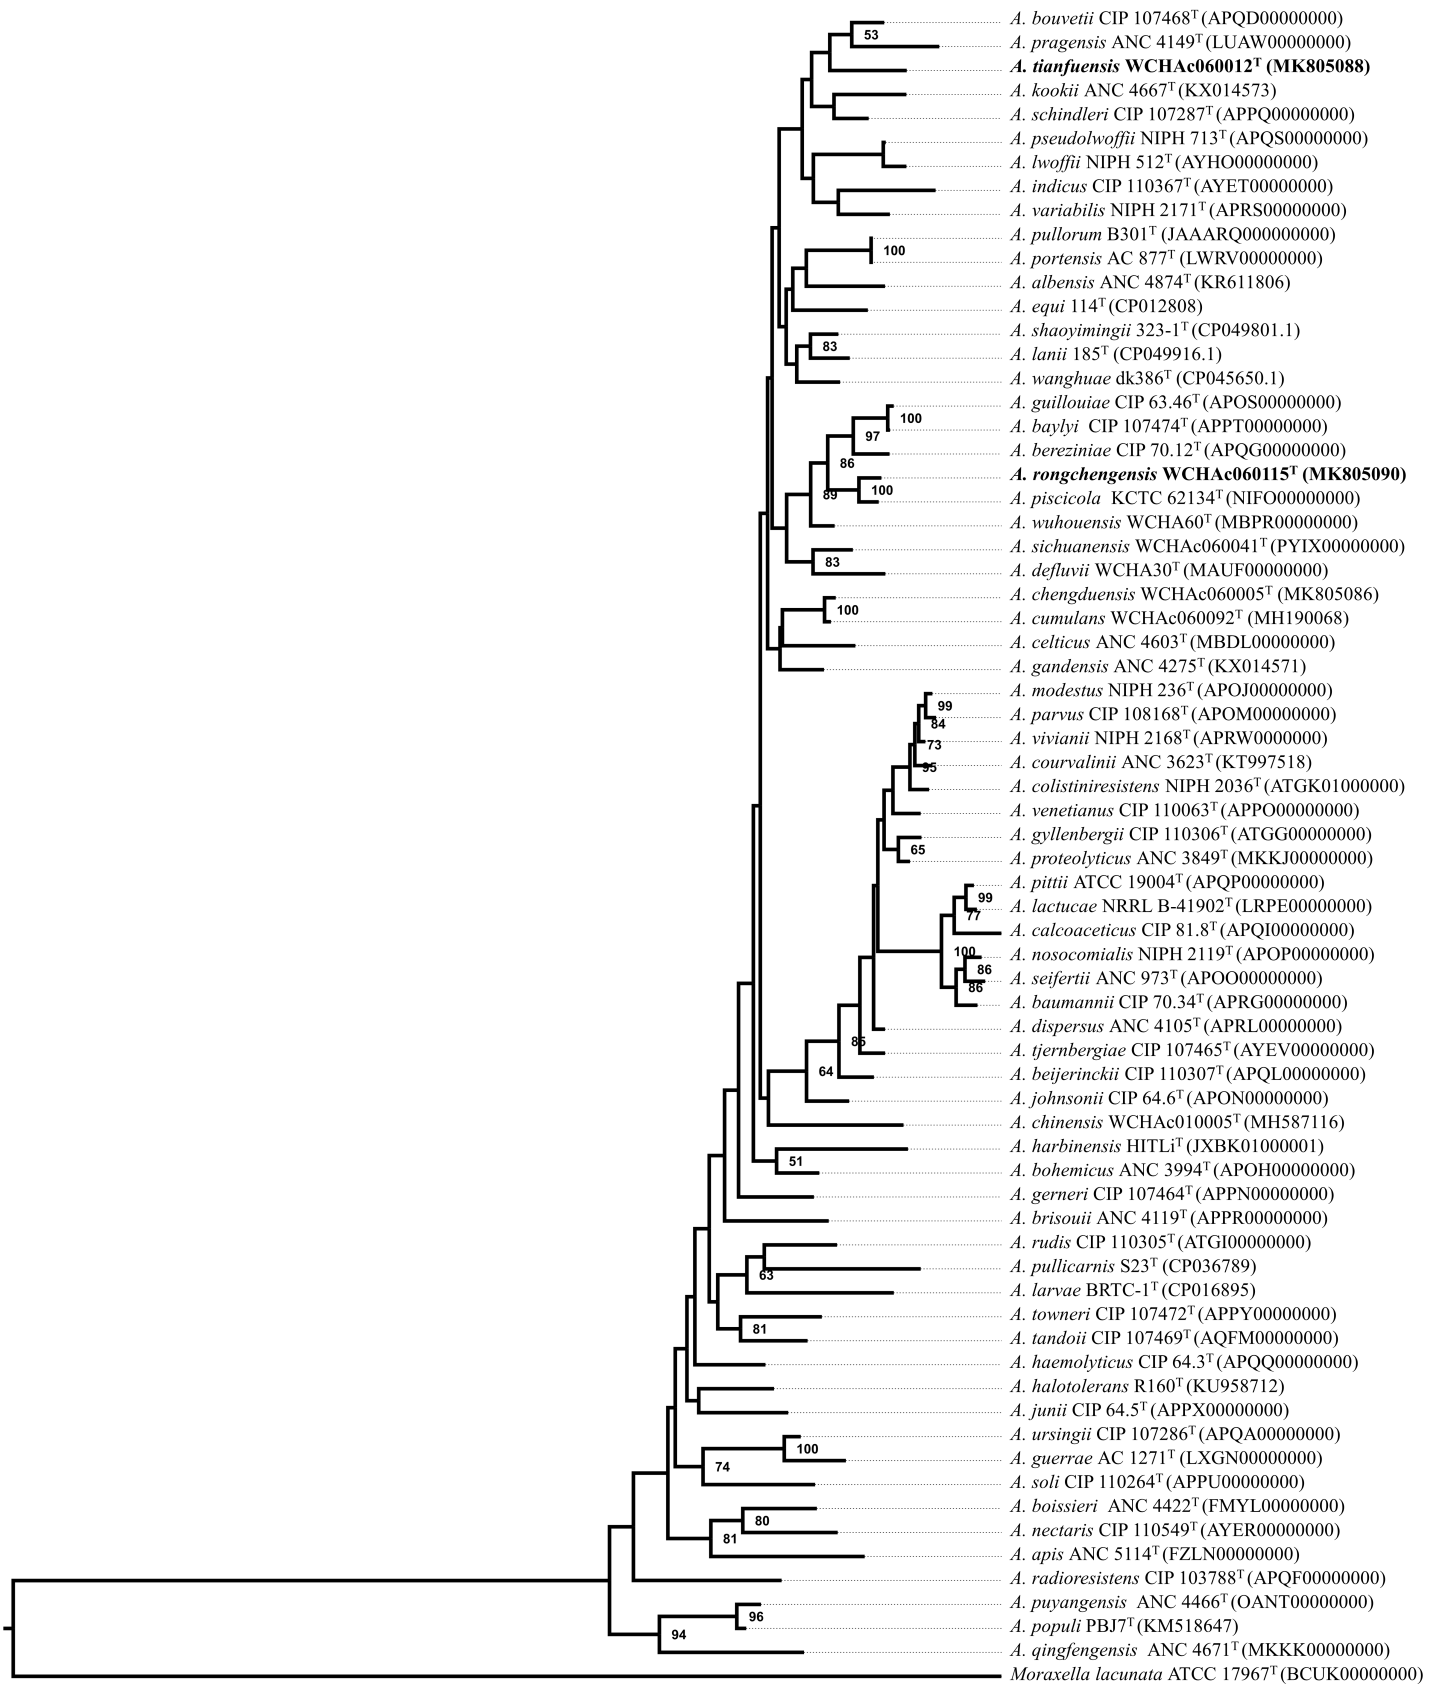 A. bouvetii CIP 107468ᵀ (APQD00000000)
53
A. pragensis ANC 4149ᵀ (LUAW00000000)
A. tianfuensis WCHAc060012ᵀ (MK805088)
A. kookii ANC 4667ᵀ (KX014573)
A. schindleri CIP 107287ᵀ (APPQ00000000)
A. pseudolwoffii NIPH 713ᵀ (APQS00000000)
A. lwoffii NIPH 512ᵀ (AYHO00000000)
A. indicus CIP 110367ᵀ (AYET00000000)
A. variabilis NIPH 2171ᵀ (APRS00000000)
A. pullorum B301ᵀ (JAAARQ000000000)
100
A. portensis AC 877ᵀ (LWRV00000000)
A. albensis ANC 4874ᵀ (KR611806)
A. equi 114ᵀ (CP012808)
A. shaoyimingii 323-1ᵀ (CP049801.1)
83
A. lanii 185ᵀ (CP049916.1)
A. wanghuae dk386ᵀ (CP045650.1)
A. guillouiae CIP 63.46ᵀ (APOS00000000)
100
A. baylyi CIP 107474ᵀ (APPT00000000)
97
A. bereziniae CIP 70.12ᵀ (APQG00000000)
86
A. rongchengensis WCHAc060115ᵀ (MK805090)
100
89
A. piscicola KCTC 62134ᵀ (NIFO00000000)
A. wuhouensis WCHA60ᵀ (MBPR00000000)
A. sichuanensis WCHAc060041ᵀ (PYIX00000000)
83
A. defluvii WCHA30ᵀ (MAUF00000000)
A. chengduensis WCHAc060005ᵀ (MK805086)
100
A. cumulans WCHAc060092ᵀ (MH190068)
A. celticus ANC 4603ᵀ (MBDL00000000)
A. gandensis ANC 4275ᵀ (KX014571)
A. modestus NIPH 236ᵀ (APOJ00000000)
99
A. parvus CIP 108168ᵀ (APOM00000000)
84
A. vivianii NIPH 2168ᵀ (APRW0000000)
73
A. courvalinii ANC 3623ᵀ (KT997518)
95
A. colistiniresistens NIPH 2036ᵀ (ATGK01000000)
A. venetianus CIP 110063ᵀ (APPO00000000)
A. gyllenbergii CIP 110306ᵀ (ATGG00000000)
65
A. proteolyticus ANC 3849ᵀ (MKKJ00000000)
A. pittii ATCC 19004ᵀ (APQP00000000)
99
A. lactucae NRRL B-41902ᵀ (LRPE00000000)
77
A. calcoaceticus CIP 81.8ᵀ (APQI00000000)
100
A. nosocomialis NIPH 2119ᵀ (APOP00000000)
86
A. seifertii ANC 973ᵀ (APOO00000000)
86
A. baumannii CIP 70.34ᵀ (APRG00000000)
A. dispersus ANC 4105ᵀ (APRL00000000)
85
A. tjernbergiae CIP 107465ᵀ (AYEV00000000)
64
A. beijerinckii CIP 110307ᵀ (APQL00000000)
A. johnsonii CIP 64.6ᵀ (APON00000000)
A. chinensis WCHAc010005ᵀ (MH587116)
A. harbinensis HITLiᵀ (JXBK01000001)
51
A. bohemicus ANC 3994ᵀ (APOH00000000)
A. gerneri CIP 107464ᵀ (APPN00000000)
A. brisouii ANC 4119ᵀ (APPR00000000)
A. rudis CIP 110305ᵀ (ATGI00000000)
A. pullicarnis S23ᵀ (CP036789)
63
A. larvae BRTC-1ᵀ (CP016895)
A. towneri CIP 107472ᵀ (APPY00000000)
81
A. tandoii CIP 107469ᵀ (AQFM00000000)
A. haemolyticus CIP 64.3ᵀ (APQQ00000000)
A. halotolerans R160ᵀ (KU958712)
A. junii CIP 64.5ᵀ (APPX00000000)
A. ursingii CIP 107286ᵀ (APQA00000000)
100
A. guerrae AC 1271ᵀ (LXGN00000000)
74
A. soli CIP 110264ᵀ (APPU00000000)
A. boissieri ANC 4422ᵀ (FMYL00000000)
80
A. nectaris CIP 110549ᵀ (AYER00000000)
81
A. apis ANC 5114ᵀ (FZLN00000000)
A. radioresistens CIP 103788ᵀ (APQF00000000)
A. puyangensis ANC 4466ᵀ (OANT00000000)
96
A. populi PBJ7ᵀ (KM518647)
94
A. qingfengensis ANC 4671ᵀ (MKKK00000000)
Moraxella lacunata ATCC 17967ᵀ (BCUK00000000)